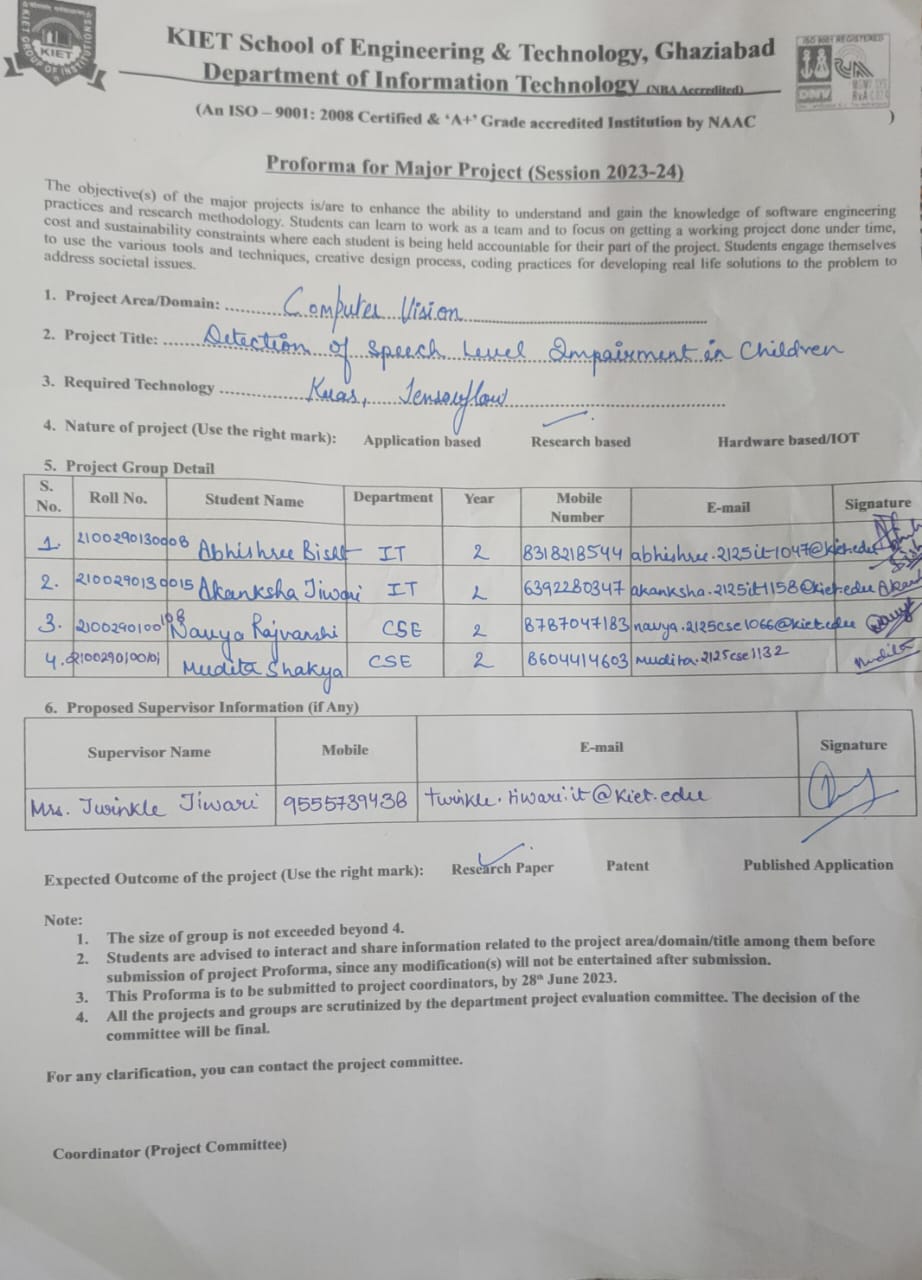 KIET
KIET GROUP OF INSTITUTIONS
KIET School of Engineering & Technology, Ghaziabad
ISO 9001 REGISTERED
Department of Information Technology (NBA Accredited)
DNV
(An ISO – 9001: 2008 Certified & ‘A+’ Grade accredited Institution by NAAC )
Proforma for Major Project (Session 2023-24)
The objective(s) of the major projects is/are to enhance the ability to understand and gain the knowledge of software engineering
practices and research methodology. Students can learn to work as a team and to focus on getting a working project done under time,
cost and sustainability constraints where each student is being held accountable for their part of the project. Students engage themselves
to use the various tools and techniques, creative design process, coding practices for developing real life solutions to the problem to
address societal issues.
1. Project Area/Domain: Computer Vision
2. Project Title: Detection of Speech Level Impairment in Children
3. Required Technology Keras, Tensorflow
4. Nature of project (Use the right mark): Application based Research based Hardware based/IOT
5. Project Group Detail
S. No. Roll No. Student Name Department Year Mobile Number E-mail Signature
1. 2100290130008 Abhishree Bisht IT 2 8318218544 abhishree.2125it1047@kiet.edu
2. 2100290130015 Akanksha Tiwari IT 2 6392280347 akanksha.2125it1158@kiet.edu
3. 2100290100108 Navya Rajvanshi CSE 2 8787047183 navya.2125cse1066@kiet.edu
4. 2100290100101 Mudita Shakya CSE 2 8604414603 mudita.2125cse1132 Mudita
6. Proposed Supervisor Information (if Any)
Supervisor Name Mobile E-mail Signature
Mrs. Twinkle Tiwari 9555739438 twinkle.tiwari.it@kiet.edu
Expected Outcome of the project (Use the right mark): Research Paper Patent Published Application
Note:
1. The size of group is not exceeded beyond 4.
2. Students are advised to interact and share information related to the project area/domain/title among them before
submission of project Proforma, since any modification(s) will not be entertained after submission.
3. This Proforma is to be submitted to project coordinators, by 28th June 2023.
4. All the projects and groups are scrutinized by the department project evaluation committee. The decision of the
committee will be final.
For any clarification, you can contact the project committee.
Coordinator (Project Committee)